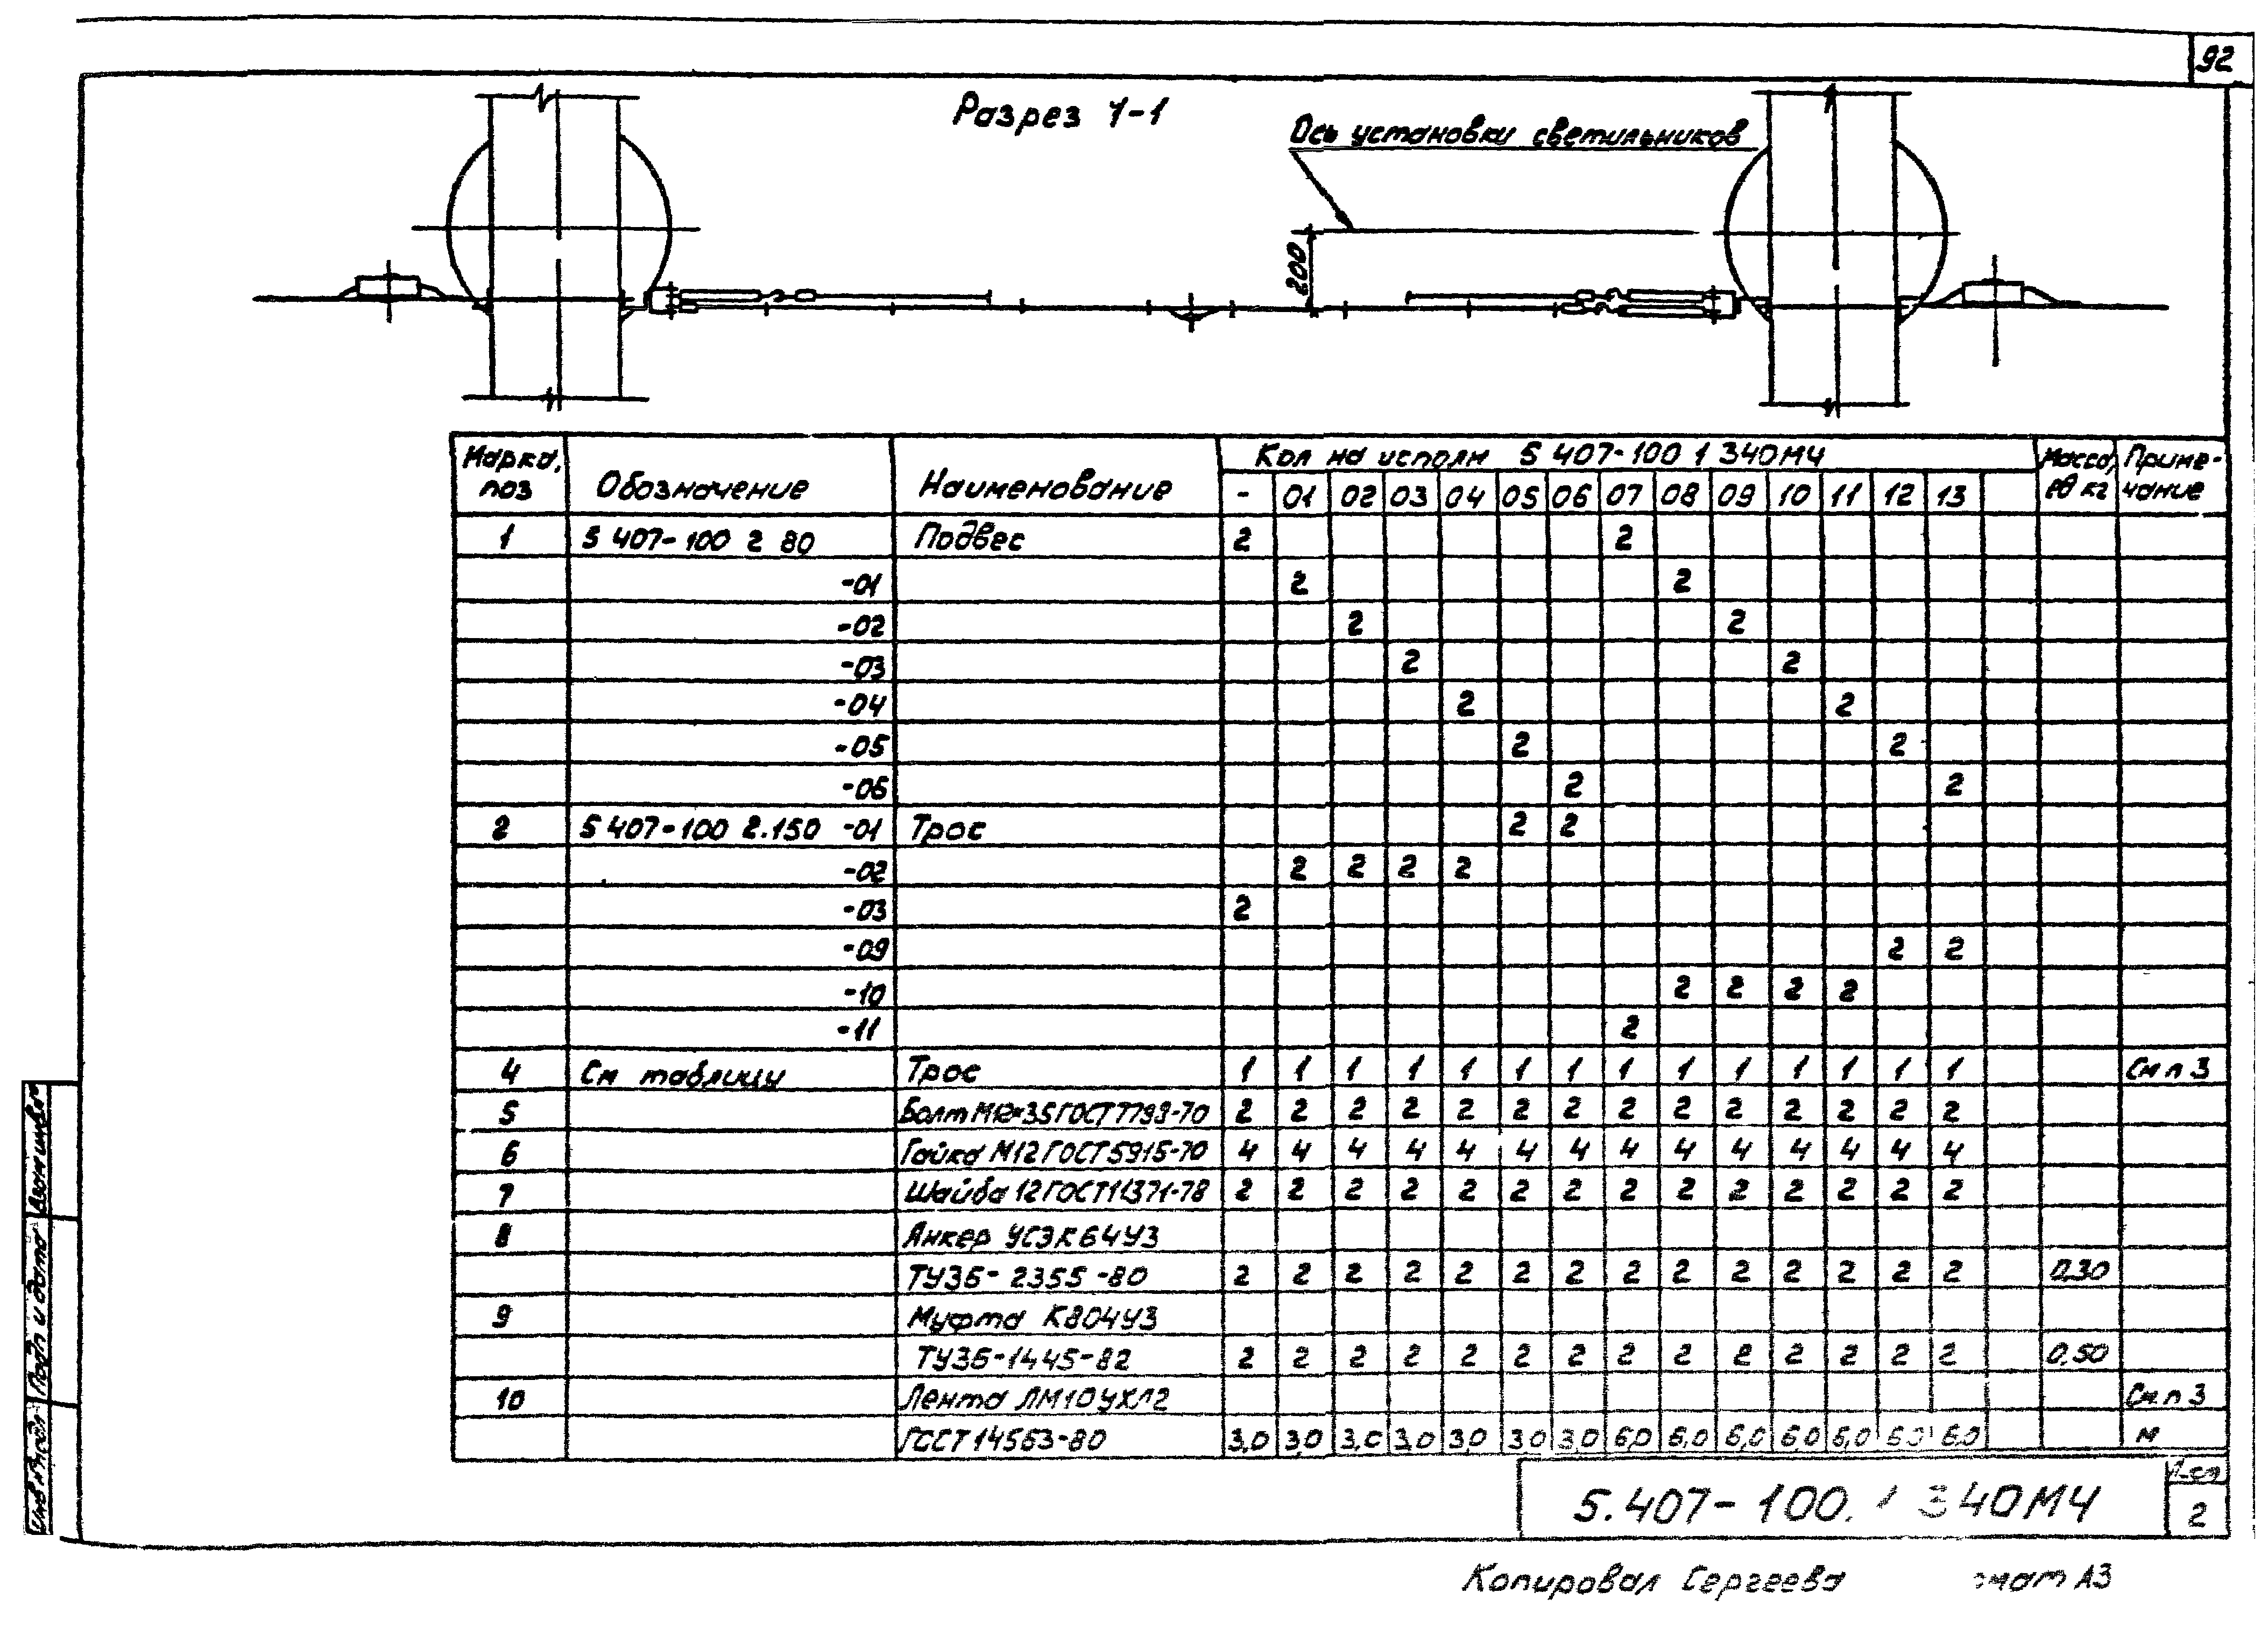 92
Разрез 1-1
Ось установки светильников
200
Марка, поз Обозначение Наименование Кол на исполн 5 407-100 1 340МЧ Масса, ед кг Приме-чание
- 01 02 03 04 05 06 07 08 09 10 11 12 13
1 5 407-100 2 80 Подвес 2 2
-01 2 2
-02 2 2
-03 2 2
-04 2 2
-05 2 2
-06 2 2
2 5 407-100 2.150 -01 Трос 2 2
-02 2 2 2 2
-03 2
-09 2 2
-10 2 2 2 2
-11 2
4 См таблицу Трос 1 1 1 1 1 1 1 1 1 1 1 1 1 1 См п 3
5 Болт М12×35 ГОСТ 7798-70 2 2 2 2 2 2 2 2 2 2 2 2 2 2
6 Гайка М12 ГОСТ 5915-70 4 4 4 4 4 4 4 4 4 4 4 4 4 4
7 Шайба 12 ГОСТ 11371-78 2 2 2 2 2 2 2 2 2 2 2 2 2 2
8 Анкер УСЭК64У3
ТУ36-2355-80 2 2 2 2 2 2 2 2 2 2 2 2 2 2 0,30
9 Муфта К804У3
ТУ36-1445-82 2 2 2 2 2 2 2 2 2 2 2 2 2 2 0,50
10 Лента ЛМ10УХЛ2 См.п 3
ГОСТ 14563-80 3,0 3,0 3,0 3,0 3,0 3,0 3,0 6,0 6,0 6,0 6,0 6,0 6,0 6,0 м
5.407-100. 1 340МЧ
2
Копировал Сергеева мат А3
Взам инв
Подп и дата
Инв № подл